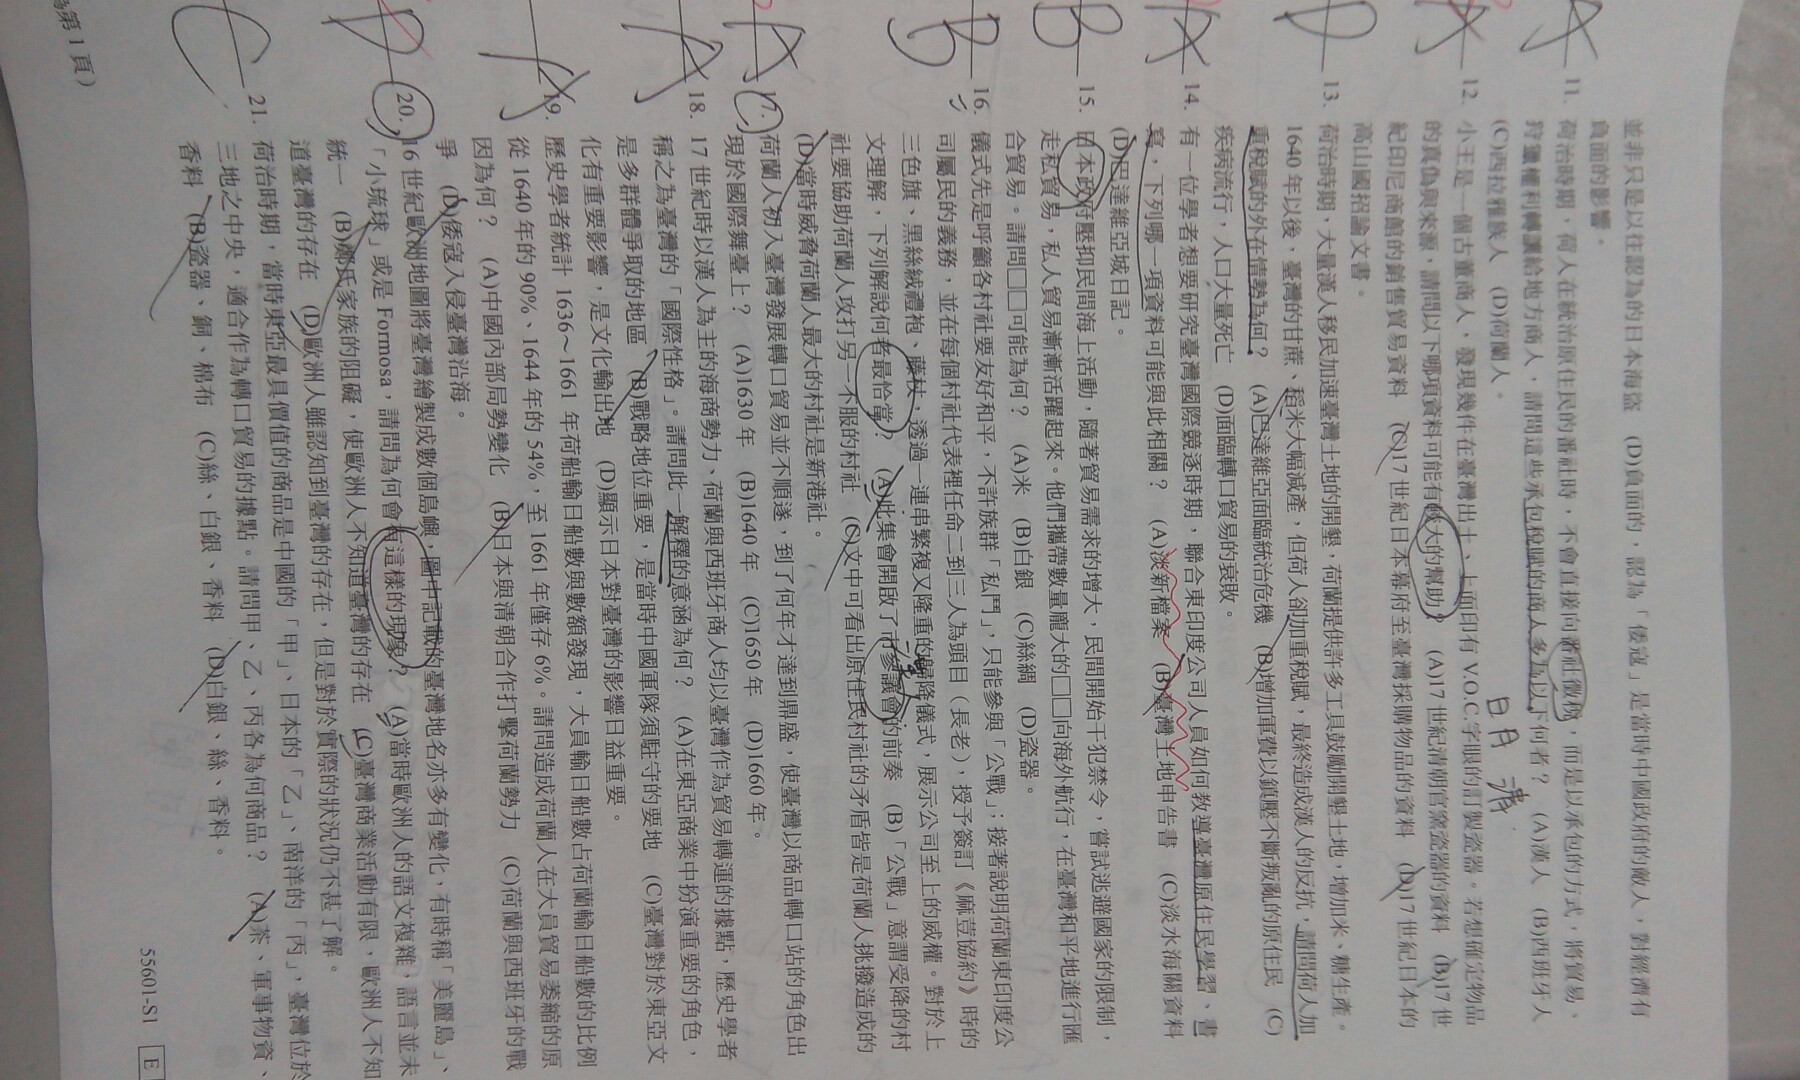 並非只是以往認為的日本海盜 (D)負面的，認為「倭寇」是當時中國政府的敵人，對經濟有
負面的影響。
A 11. 荷治時期，荷人在統治原住民的番社時，不會直接向番社徵稅，而是以承包的方式，將貿易、
狩獵權利轉讓給地方商人，請問這些承包稅賦的商人多為以下何者？ (A)漢人 (B)西班牙人
(C)西拉雅族人 (D)荷蘭人。
12. 小王是一個古董商人，發現幾件在臺灣出土、上面印有 V.O.C.字眼的訂製瓷器。若想確定物品
的真偽與來源，請問以下哪項資料可能有較大的幫助？ (A)17 世紀清朝官窯瓷器的資料 (B)17 世
紀印尼商館的銷售貿易資料 (C)17 世紀日本幕府至臺灣採購物品的資料 (D)17 世紀日本的
高山國招諭文書。
日月
清
D 13. 荷治時期，大量漢人移民加速臺灣土地的開墾，荷蘭提供許多工具鼓勵開墾土地，增加米、糖生產。
1640 年以後，臺灣的甘蔗、稻米大幅減產，但荷人卻加重稅賦，最終造成漢人的反抗，請問荷人加
重稅賦的外在情勢為何？ (A)巴達維亞面臨統治危機 (B)增加軍費以鎮壓不斷叛亂的原住民 (C)
疾病流行，人口大量死亡 (D)面臨轉口貿易的衰敗。
A 14. 有一位學者想要研究臺灣國際競逐時期，聯合東印度公司人員如何教導臺灣原住民學習、書
寫，下列哪一項資料可能與此相關？ (A)淡新檔案 (B)臺灣土地申告書 (C)淡水海關資料
(D)巴達維亞城日記。
B 15. 日本政府壓抑民間海上活動，隨著貿易需求的增大，民間開始干犯禁令，嘗試逃避國家的限制，
走私貿易，私人貿易漸漸活躍起來。他們攜帶數量龐大的□□向海外航行，在臺灣和平地進行匯
合貿易。請問□□可能為何？ (A)米 (B)白銀 (C)絲綢 (D)瓷器。
B 16. 儀式先是呼籲各村社要友好和平，不許族群「私鬥」，只能參與「公戰」；接著說明荷蘭東印度公
司屬民的義務，並在每個村社代表裡任命二到三人為頭目（長老），授予簽訂《麻荳協約》時的
三色旗、黑絲絨禮袍、藤杖，透過一連串繁複又隆重的歸降儀式，展示公司至上的威權。對於上
文理解，下列解說何者最恰當？ (A)此集會開啟了市參議會的前奏 (B)「公戰」意謂受降的村
社要協助荷蘭人攻打另一不服的村社 (C)文中可看出原住民村社的矛盾皆是荷蘭人挑撥造成的
(D)當時威脅荷蘭人最大的村社是新港社。
A 17. 荷蘭人初入臺灣發展轉口貿易並不順遂，到了何年才達到鼎盛，使臺灣以商品轉口站的角色出
現於國際舞臺上？ (A)1630 年 (B)1640 年 (C)1650 年 (D)1660 年。
A 18. 17 世紀時以漢人為主的海商勢力、荷蘭與西班牙商人均以臺灣作為貿易轉運的據點，歷史學者
稱之為臺灣的「國際性格」。請問此一解釋的意涵為何？ (A)在東亞商業中扮演重要的角色，
是多群體爭取的地區 (B)戰略地位重要，是當時中國軍隊須駐守的要地 (C)臺灣對於東亞文
化有重要影響，是文化輸出地 (D)顯示日本對臺灣的影響日益重要。
A 19. 歷史學者統計 1636～1661 年荷船輸日船數與數額發現，大員輸日船數占荷蘭輸日船數的比例
從 1640 年的 90%、1644 年的 54%，至 1661 年僅存 6%。請問造成荷蘭人在大員貿易萎縮的原
因為何？ (A)中國內部局勢變化 (B)日本與清朝合作打擊荷蘭勢力 (C)荷蘭與西班牙的戰
爭 (D)倭寇入侵臺灣沿海。
D 20. 16 世紀歐洲地圖將臺灣繪製成數個島嶼，圖中記載的臺灣地名亦多有變化，有時稱「美麗島」、
「小琉球」或是 Formosa，請問為何會有這樣的現象？ (A)當時歐洲人的語文複雜，語言並未
統一 (B)鄭氏家族的阻礙，使歐洲人不知道臺灣的存在 (C)臺灣商業活動有限，歐洲人不知
道臺灣的存在 (D)歐洲人雖認知到臺灣的存在，但是對於實際的狀況仍不甚了解。
C 21. 荷治時期，當時東亞最具價值的商品是中國的「甲」、日本的「乙」、南洋的「丙」，臺灣位於
三地之中央，適合作為轉口貿易的據點。請問甲、乙、丙各為何商品？ (A)茶、軍事物資、
香料 (B)瓷器、銅、棉布 (C)絲、白銀、香料 (D)白銀、絲、香料。
為第 1 頁）
55601-S1 E